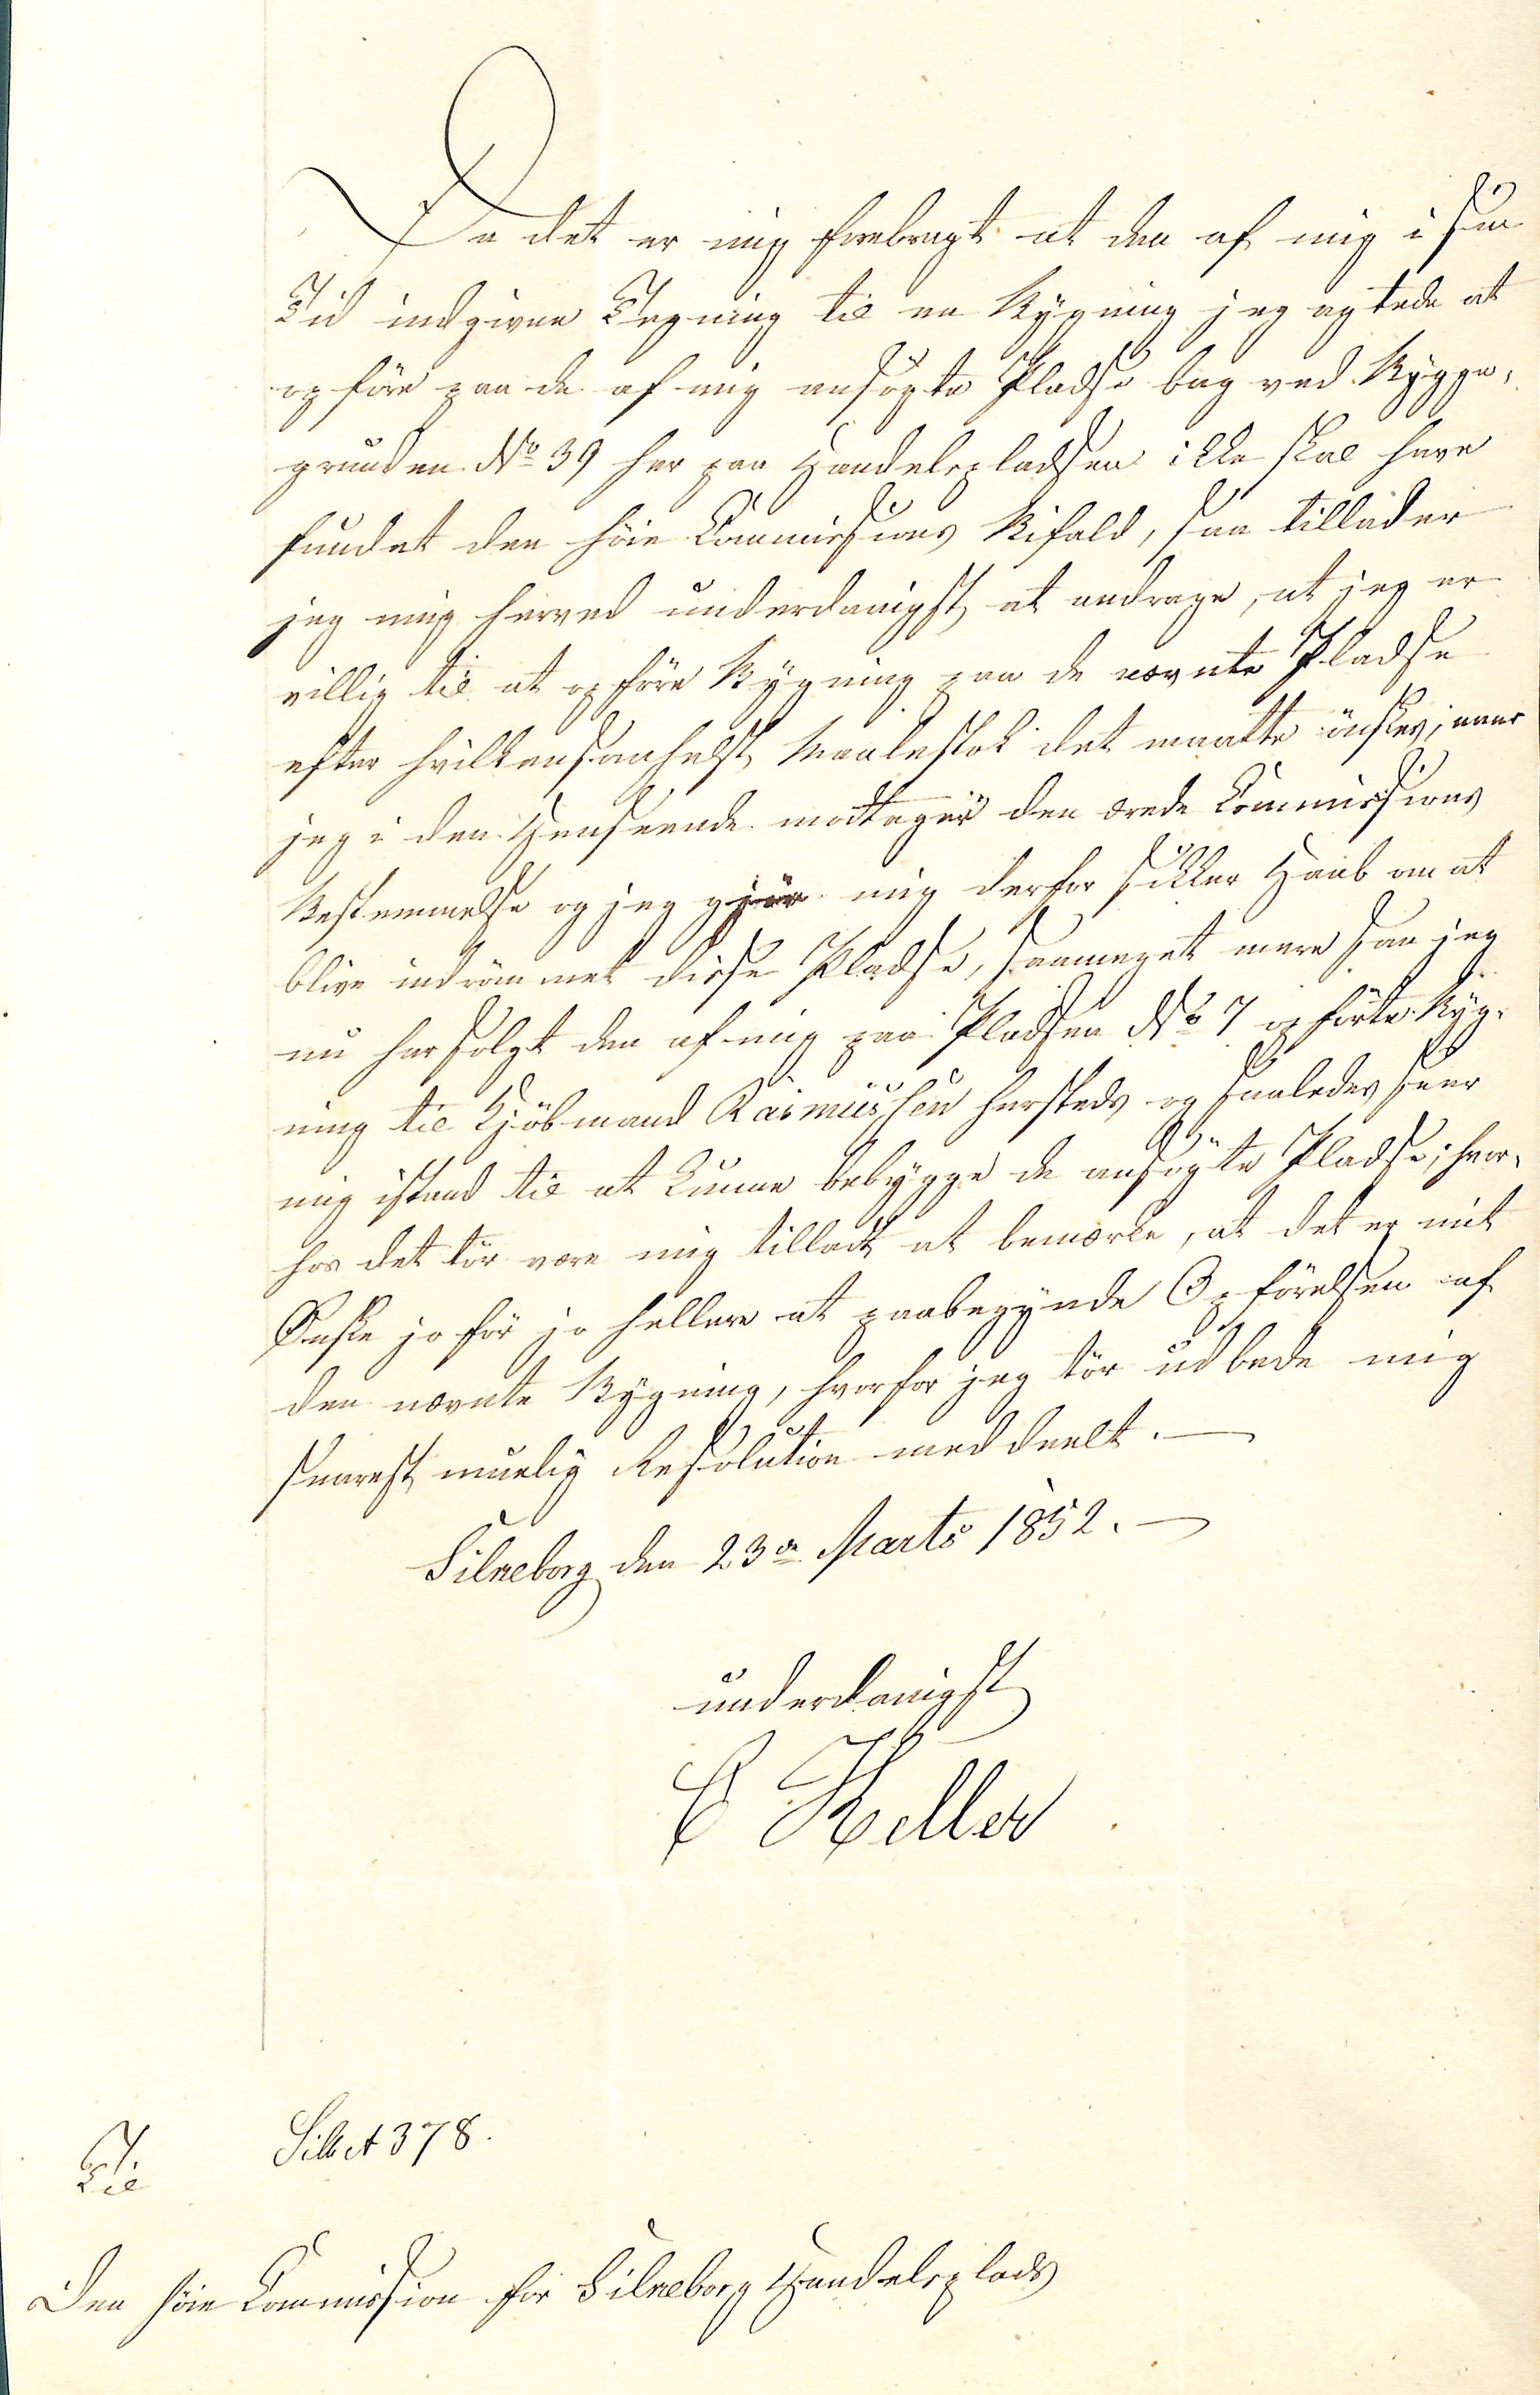 Da det er mig forebragt at den af mig i sin
Tid indgivne Tegning til en Bÿgning jeg agtede at
opföre paa de af mig ansøgte Pladse bag ved Bÿgge-
grunden No 39 her paa Handelspladsen ikke skal have
fundet den höie Commissions Bifald, saa tillader
jeg mig herved underdanigst at andrage, at jeg er
villig til at opföre Bÿgning paa de nævnte Pladse
efter hvilkensomhelst Maalestok det maatte önskes, naar
jeg i den Henseende modtager den ærede Commissions
Bestemmelse og jeg gjör mig derfor sikker Haab om at
blive indrömmet disse Pladse, saameget mere som jeg
nu har solgt den af mig paa Pladsen No 7 opförte Bÿg-
ning til Kjöbmand Rasmussen hersteds og saaledes seer
mig istand til at kunne bebÿgge de ansögte Pladse; hvor-
hos det tör være mig tilladt at bemærke, at det er mit
Ønske jo för jo hellere at paabegÿnde Opförelsen af
den nævnte Bÿgning, hvorfor jeg tör udbede mig
snarest muelig Resolution meddeelt.—
Silkeborg den 23de Marts 1852.—
underdanigst
C Keller
Silk A 378.
Til
Den höie Commission for Silkeborg Handelsplads